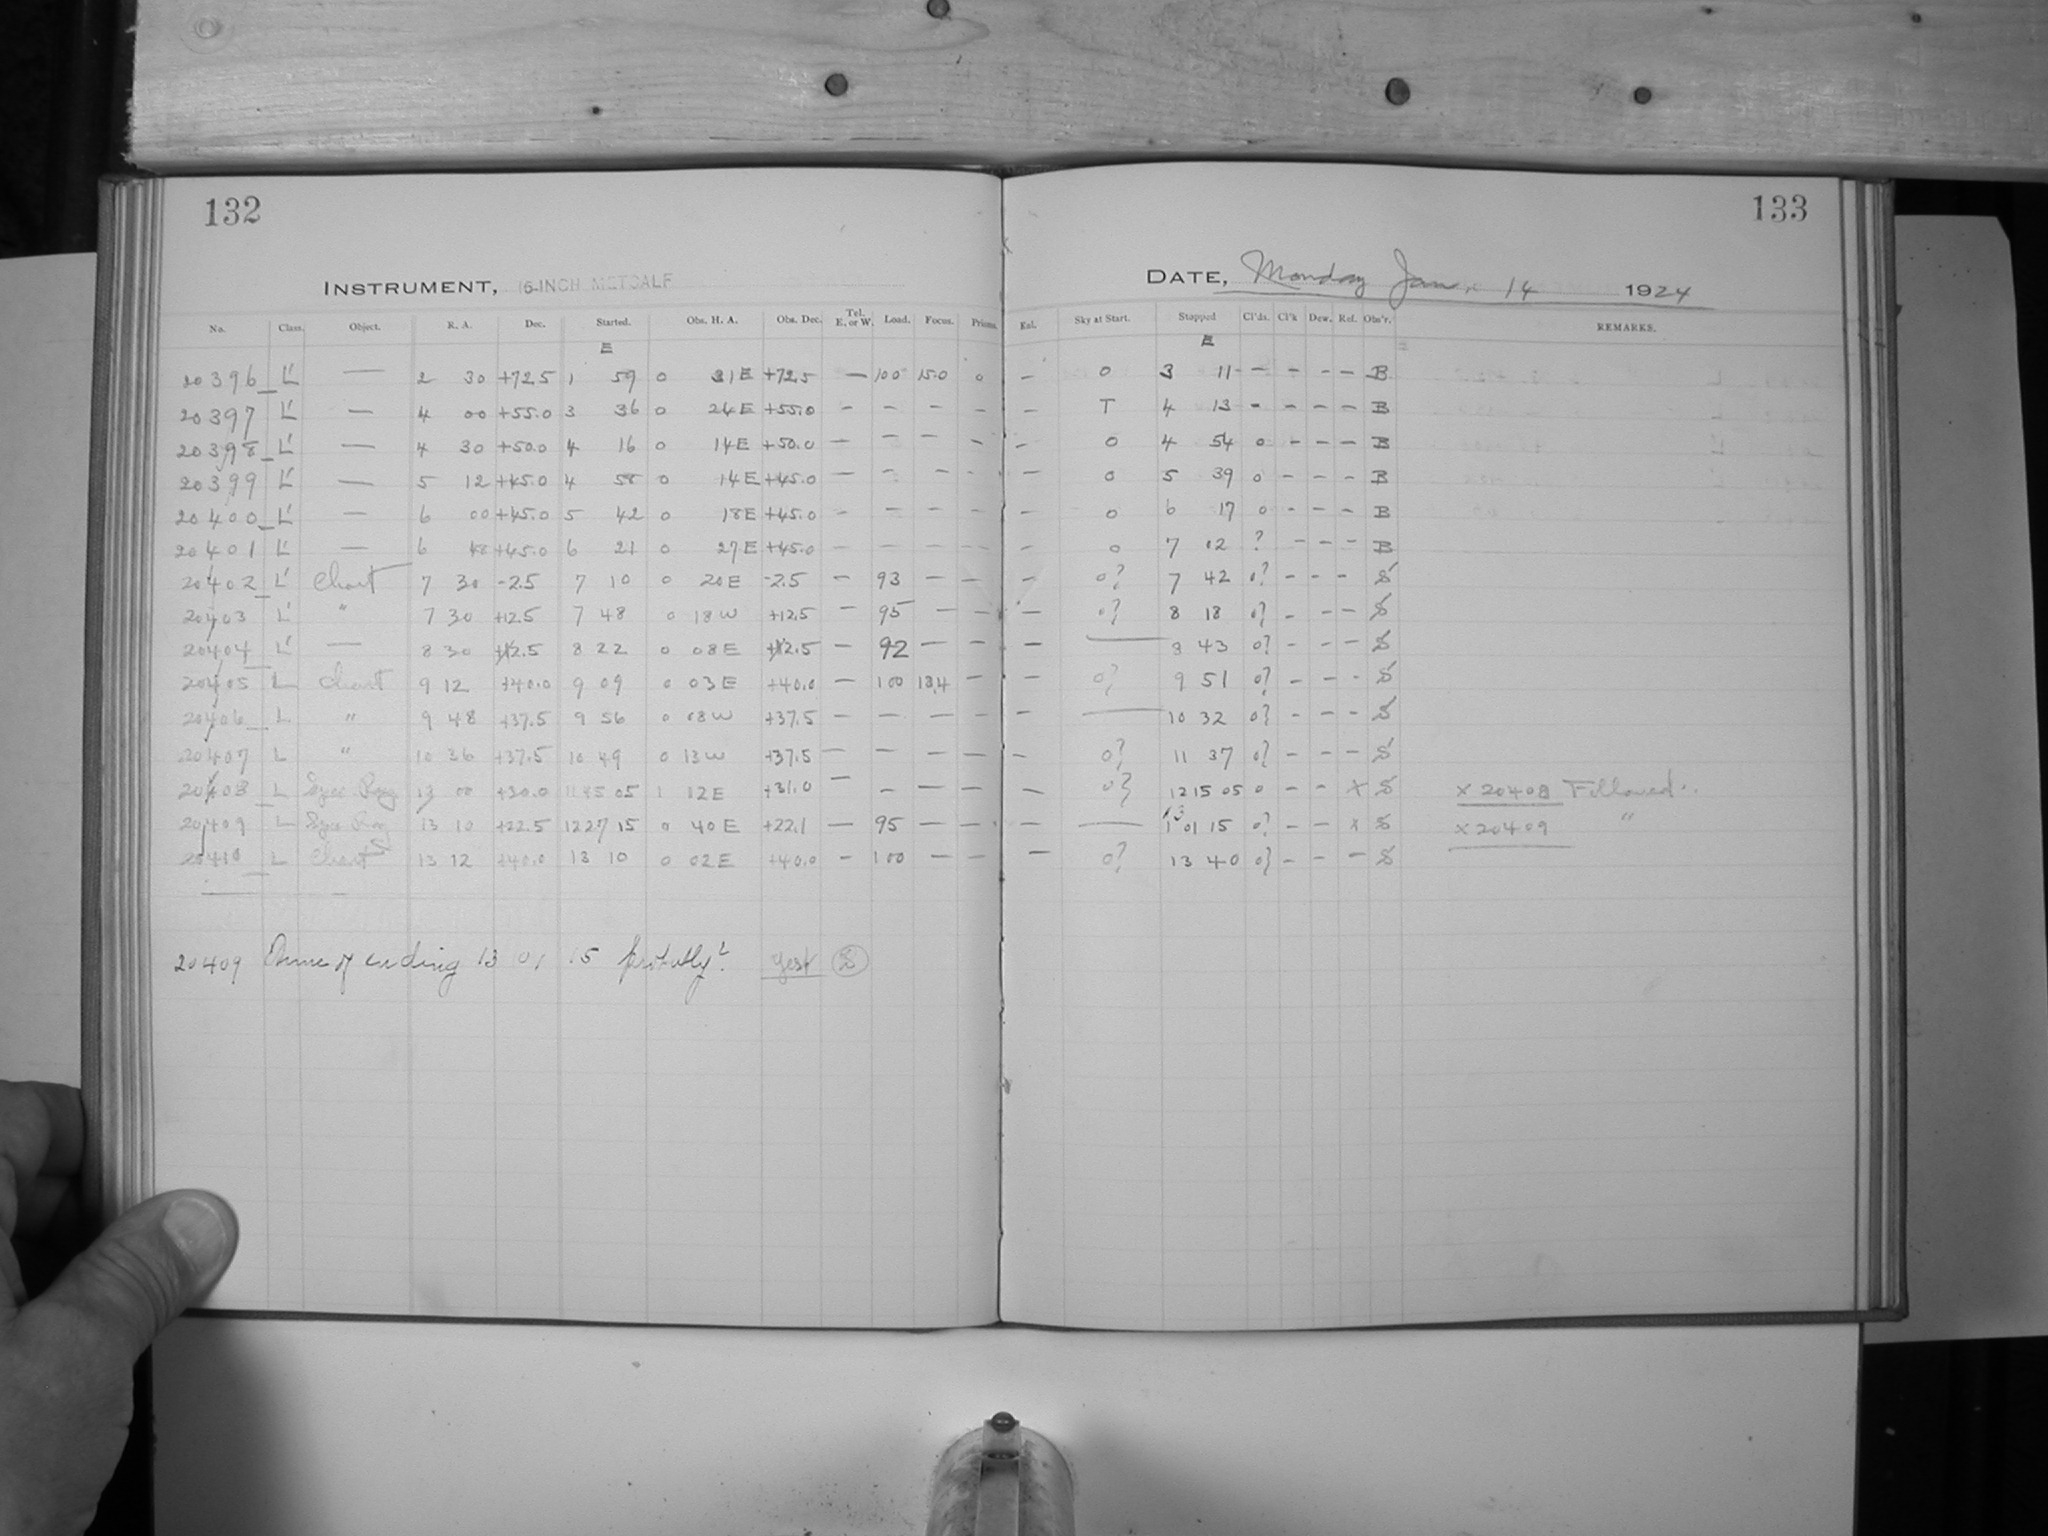 132
INSTRUMENT, 16-INCH METCALF
No. Class. Object. R. A. Dec. Started. Obs. H. A. Obs. Dec. Tel. E. or W. Load. Focus. Prisms.
E
20396 L' — 2 30 +72.5 1 59 0 31E +72.5 — 100 15.0 0
20397 L' — 4 00 +55.0 3 36 0 24E +55.0 - - - -
20398 L' — 4 30 +50.0 4 16 0 14E +50.0 - - - -
20399 L' — 5 12 +45.0 4 58 0 14E +45.0 - - - -
20400 L' — 6 00 +45.0 5 42 0 18E +45.0 - - - -
20401 L' — 6 48 +45.0 6 21 0 27E +45.0 - - - -
20402 L' Chart 7 30 -2.5 7 10 0 20E -2.5 - 93 - -
20403 L' " 7 30 +12.5 7 48 0 18W +12.5 - 95 - -
20404 L' — 8 30 +12.5 8 22 0 08E +12.5 - 92 - -
20405 L Chart 9 12 +40.0 9 09 0 03E +40.0 - 100 18.4 -
20406 L " 9 48 +37.5 9 56 0 08W +37.5 - - - -
20407 L " 10 36 +37.5 10 49 0 13W +37.5 - - - -
20408 L 13 00 +30.0 11 45 05 1 12E +31.0 - - - -
20409 L 13 10 +22.5 12 27 15 0 40E +22.1 - 95 - -
20410 L Chart 13 12 +40.0 13 10 0 02E +40.0 - 100 - -
20409 Time of ending 13 01 15 probably? yes (S)
133
DATE, Monday Jan. 14 1924
Exl. Sky at Start. Stopped Cl'ds. Cl'k Dew. Ref. Obs'r. REMARKS.
E
- 0 3 11 - - - - B
- T 4 13 - - - - B
- 0 4 54 0 - - - B
- 0 5 39 0 - - - B
- 0 6 17 0 - - - B
- 0 7 02 ? - - - B
- 0? 7 42 0? - - - S
- 0? 8 18 0? - - - S
- — 8 43 0? - - - S
- 0? 9 51 0? - - - S
- — 10 32 0? - - - S
- 0? 11 37 0? - - - S
- 0? 12 15 05 0 - - x S x 20408 Followed.
- — 13 01 15 0? - - x S x 20409 "
- 0? 13 40 0? - - - S